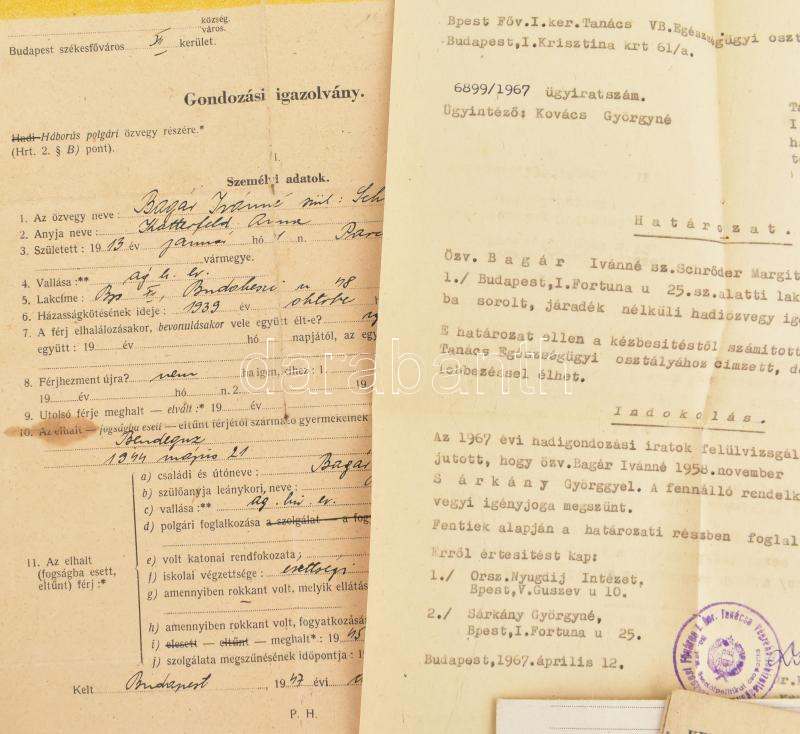 község.
város.
Budapest székesfőváros XI kerület.
Gondozási igazolvány.
Hadi-Háborús polgári özvegy részére.*
(Hrt. 2. § B) pont).
I.
Személyi adatok.
1. Az özvegy neve: Bagár Ivánné szül: Sch
2. Anyja neve: Katterfeld Anna
3. Született: 1913 év január hó 1 n.
vármegye.
4. Vallása:** ág h. ev.
5. Lakcíme: Bp XI, Budakeszi u 48
6. Házasságkötésének ideje: 1939 év október h
7. A férj elhalálozásakor, bevonulásakor vele együtt élt-e?
együtt: 19 év hó napjától, az egy
8. Férjhezment újra? nem ha igen, kihez: 1.
19 év hó n. 2. 19
9. Utolsó férje meghalt — elvált:* 19 év
10. Az elhalt — fogságba esett — eltűnt férjétől származó gyermekeinek
Bendeguz
1944 május 21
11. Az elhalt (fogságba esett, eltűnt) férj:*
a) családi és útóneve: Bagár
b) szülőanyja leánykori, neve:
c) vallása:** ág. hiv. ev.
d) polgári foglalkozása a szolgálat — a fog
e) volt katonai rendfokozata:
f) iskolai végzettsége: érettségi
g) amennyiben rokkant volt, melyik ellátás
h) amennyiben rokkant volt, fogyatkozásá
i) elesett — eltűnt — meghalt*: 1945
j) szolgálata megszűnésének időpontja: 1
Kelt Budapest, 1947 évi
P. H.
Bpest Főv.I.ker.Tanács VB.Egészségügyi oszt
Budapest,I.Krisztina krt 61/a.
6899/1967 ügyiratszám.
Ügyintéző: Kovács Györgyné
Ta
I.
ha
te
Határozat.
Özv. Bagár Ivánné sz.Schrőder Margit
1./ Budapest,I.Fortuna u 25.sz.alatti lak
ba sorolt, járadék nélküli hadiözvegy ig
E határozat ellen a kézbesitéstől számitott
Tanács Egészségügyi osztályához cimzett, de
lebbezéssel élhet.
Indokolás.
Az 1967 évi hadigondozási iratok felülvizsgál
jutott, hogy özv.Bagár Ivánné 1958.november
Sárkány Györggyel. A fennálló rendelk
vegyi igényjoga megszünt.
Fentiek alapján a határozati részben foglal
Erről értesitést kap:
1./ Orsz.Nyugdij Intézet,
Bpest,V.Guszev u 10.
2./ Sárkány Györgyné,
Bpest,I.Fortuna u 25.
Budapest,1967.április 12.
darabanth